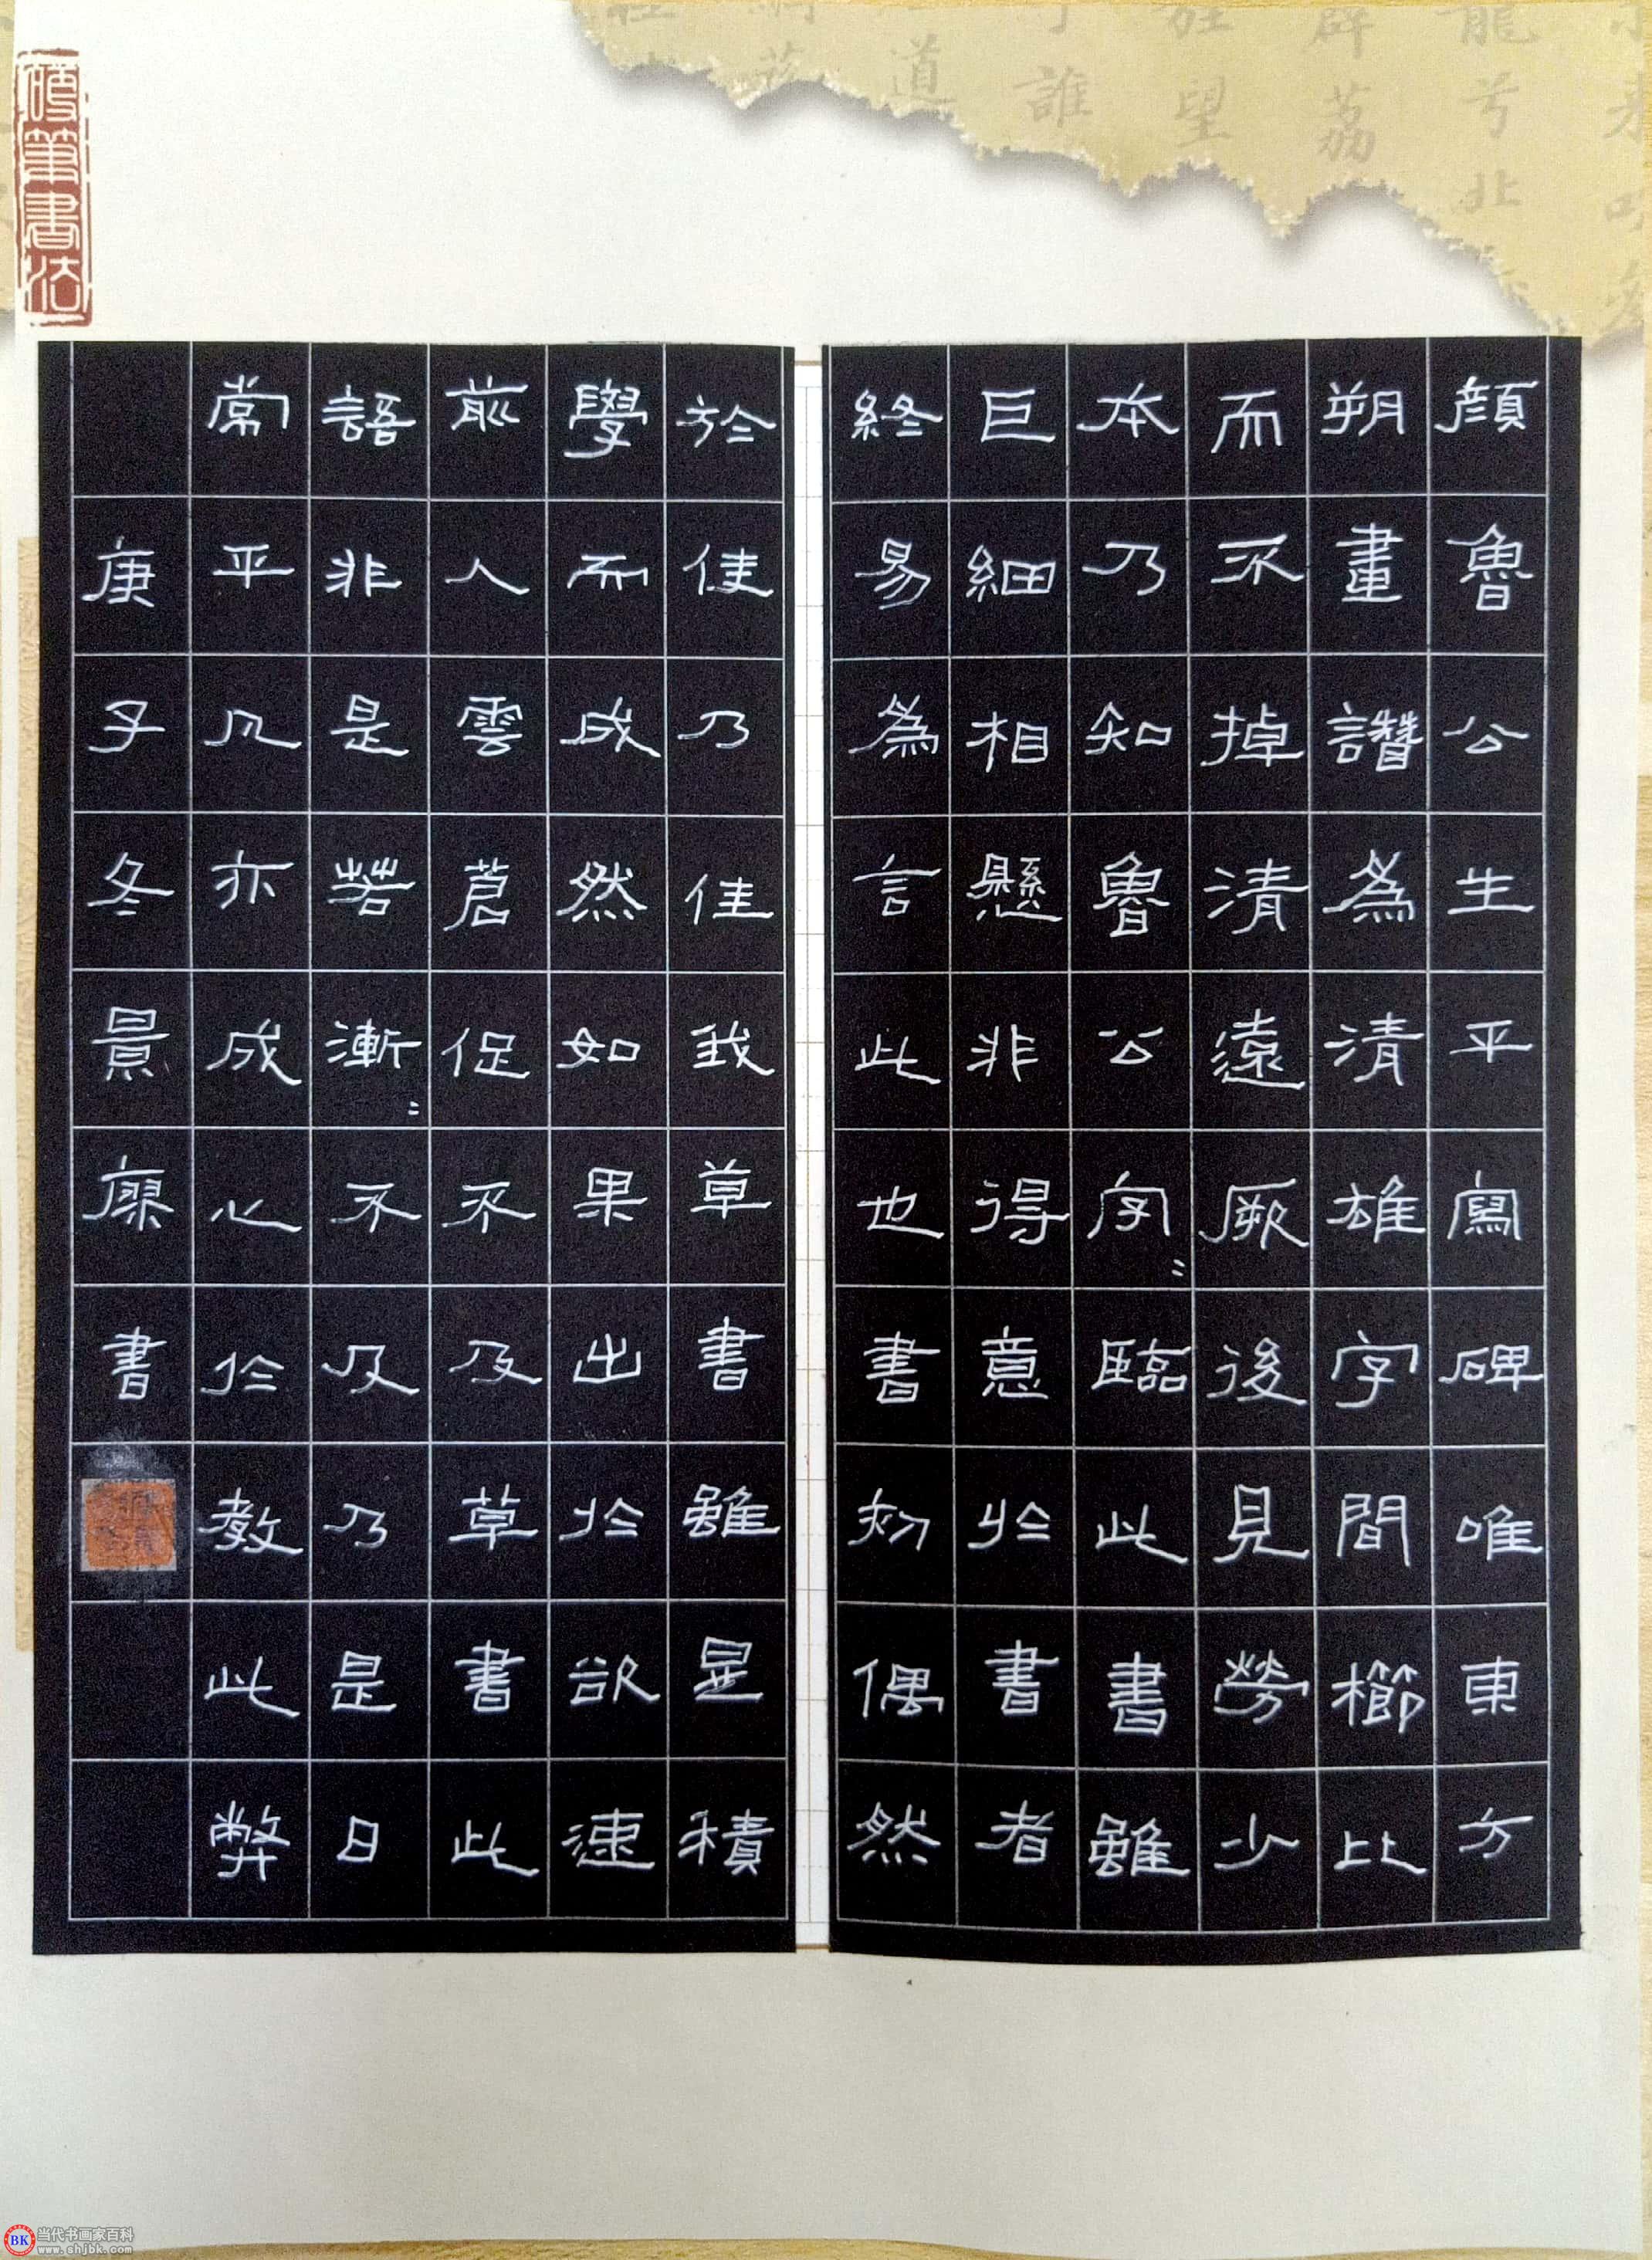 龍兮北
薜荔
望
誰
道
硬筆書法
顔魯公生平寫碑唯東方
朔畫讚為清雄字間櫛比
而不掉清遠厥後見勞少
本乃知魯公字〻臨此書雖
巨細相懸非得意於書者
終易為言此也書初偶然
於佳乃佳我草書雖是積
學而成然如果出於欲速
前人雲蒼促不及草書此
語非是若漸〻不及乃是日
常平凡亦成心於教此弊
庚子冬景康書
BK 当代书画家百科
www.shjbk.com